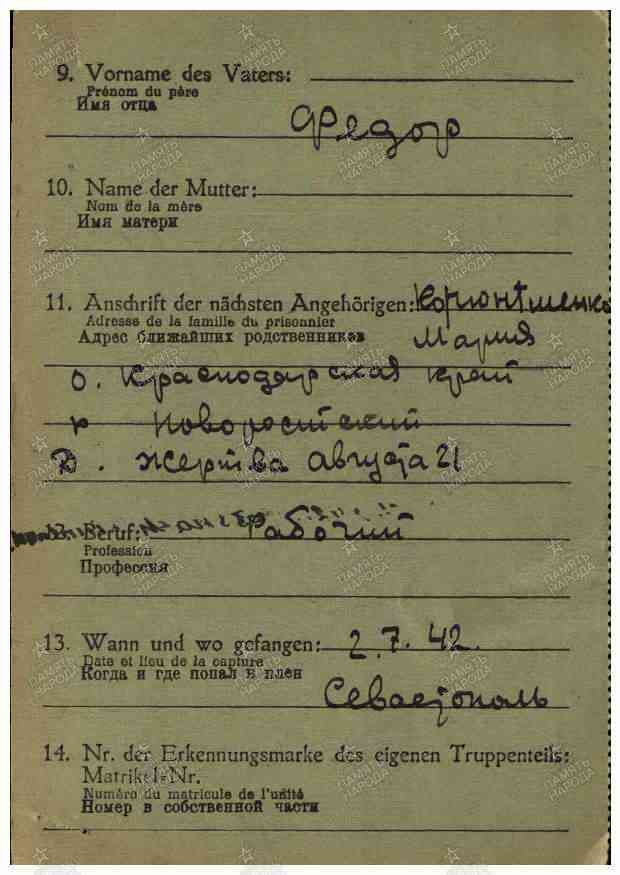 9. Vorname des Vaters:
Prénom du père
Имя отца
Федор
10. Name der Mutter:
Nom de la mère
Имя матери
11. Anschrift der nächsten Angehörigen:
Adresse de la famille du prisonnier
Адрес ближайших родственников
Мария
о. Краснодарская край
р Новоросийский
Д. жертва августа 21
Beruf: Рабочий
Profession
Профессия
13. Wann und wo gefangen: 2.7.42.
Date et lieu de la capture
Когда и где попал в плен
Севастополь
14. Nr. der Erkennungsmarke des eigenen Truppenteils:
Matrikel-Nr.
Numéro du matricule de l'unité
Номер в собственной части